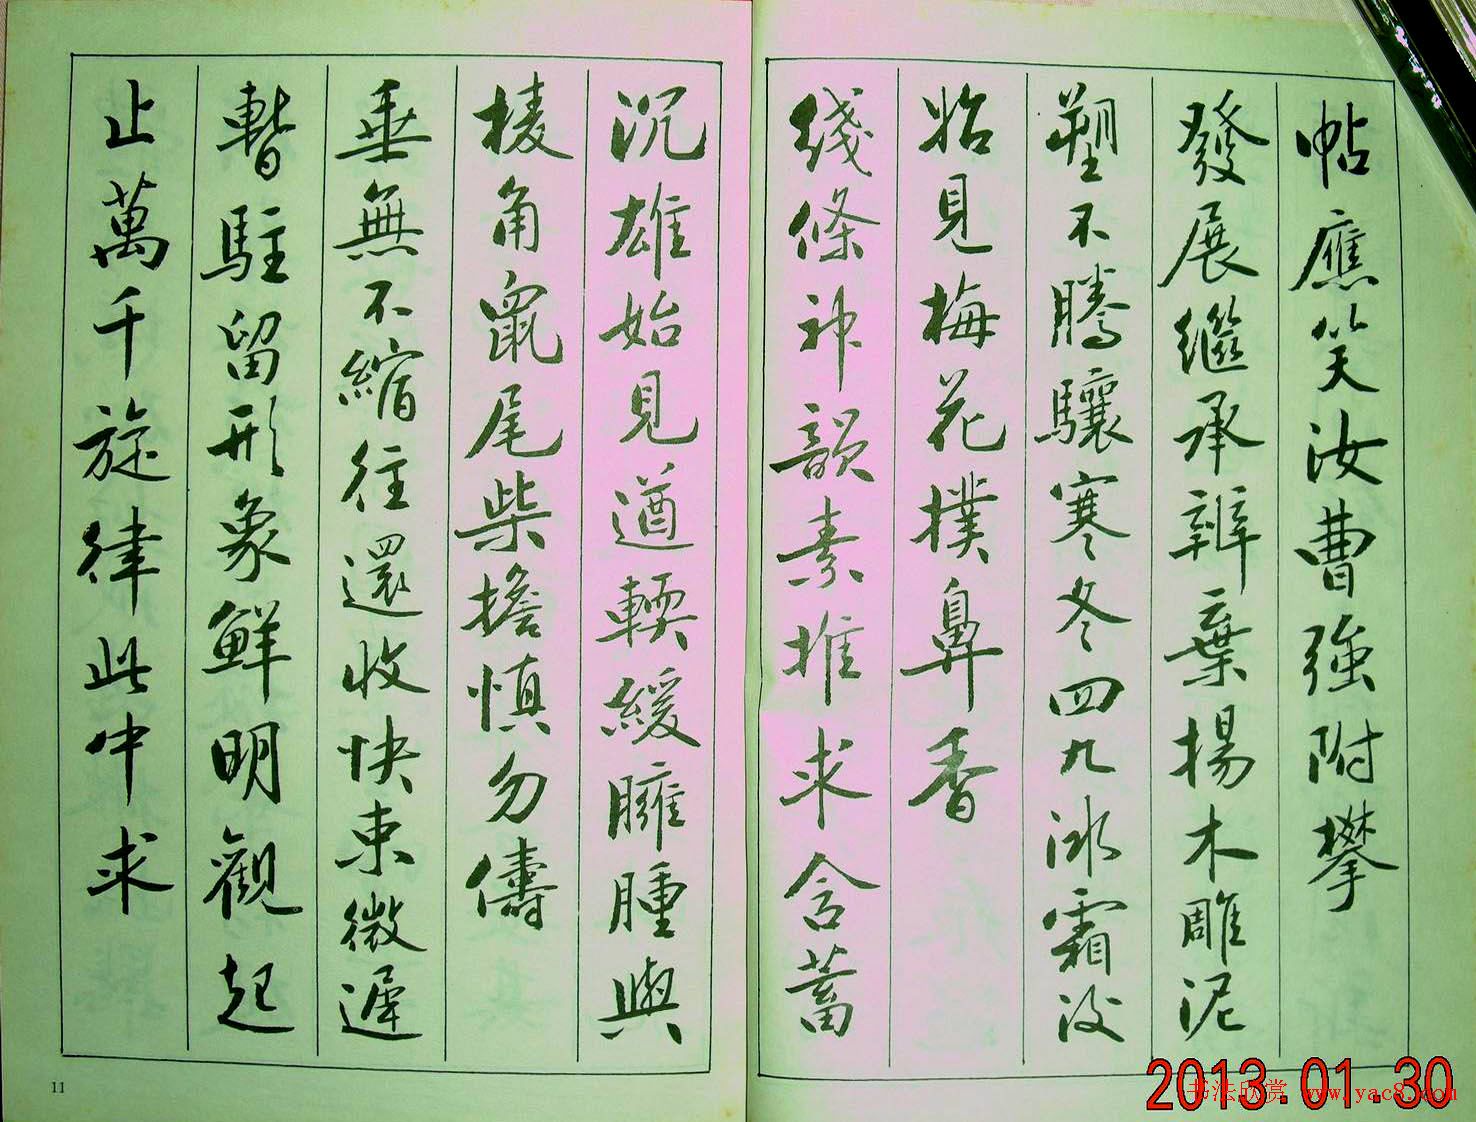 帖應笑汝曹強附攀
發展繼承辨棄揚木雕泥
塑不騰驤寒冬四九冰霜沒
始見梅花撲鼻香
綫條神韻素推求含蓄
沉雄始見遒輭緩臃腫與
棱角鼠尾柴擔慎勿儔
垂無不縮往還收快東微遲
暫駐留形象鮮明觀起
止萬千旋律此中求
11
2013.01.30
书法欣赏 www.yac8.com